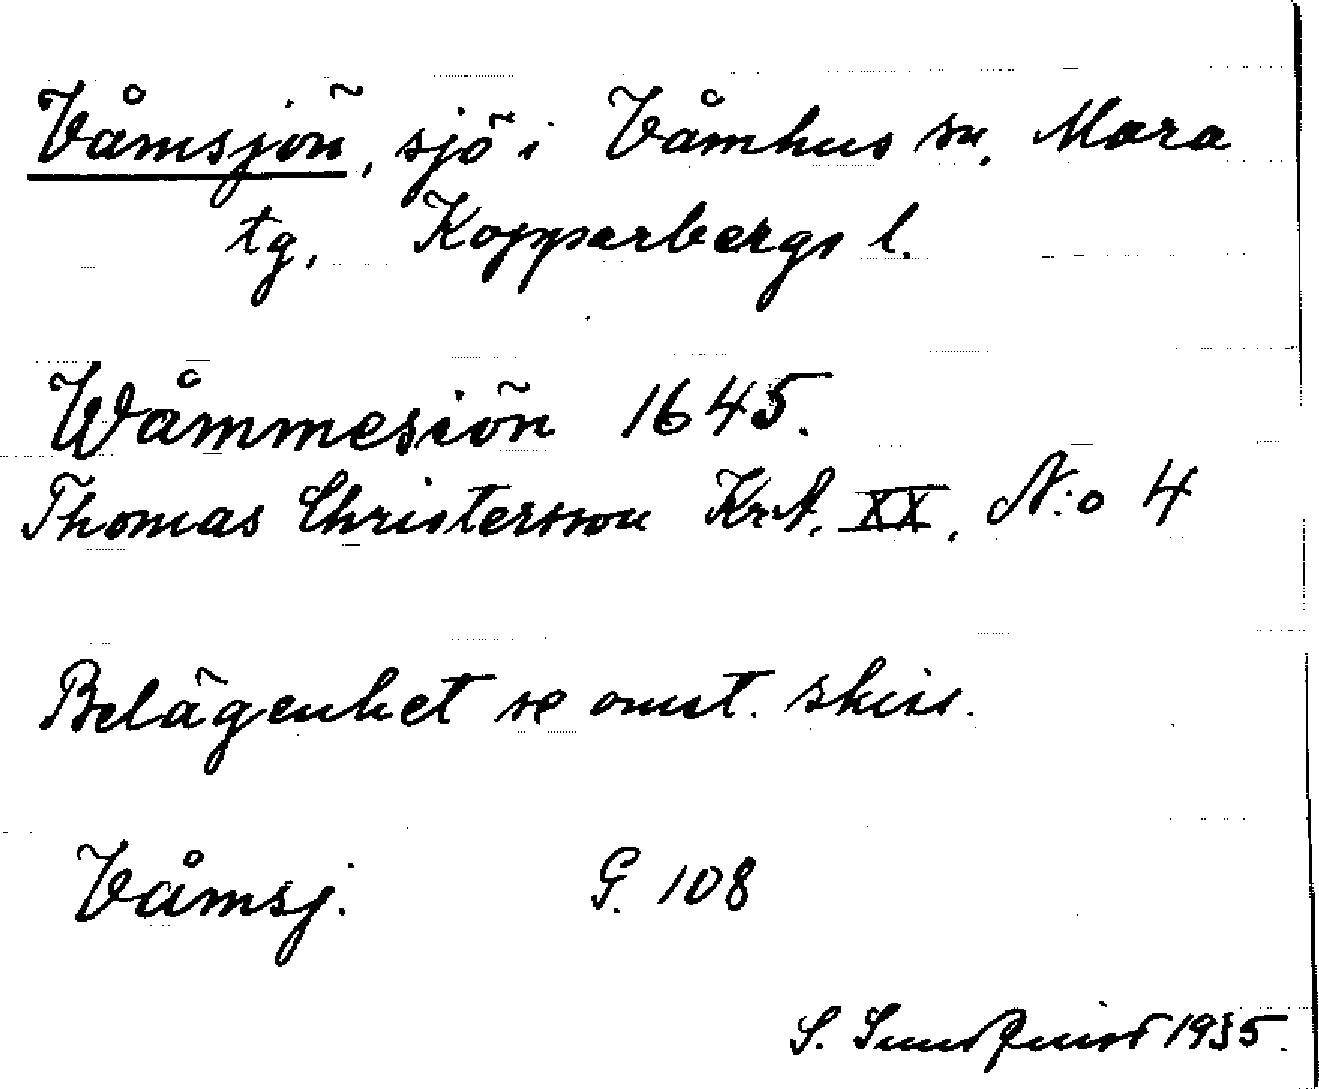 Våmsjön, sjö i Våmhus sn. Mora
tg, Kopparbergs l.
Wåmmesiön 1645.
Thomas Christersson Krt. XX, N:o 4
Belägenhet se omst. skiss.
Våmsj. G. 108
S. Sundquist 1935.